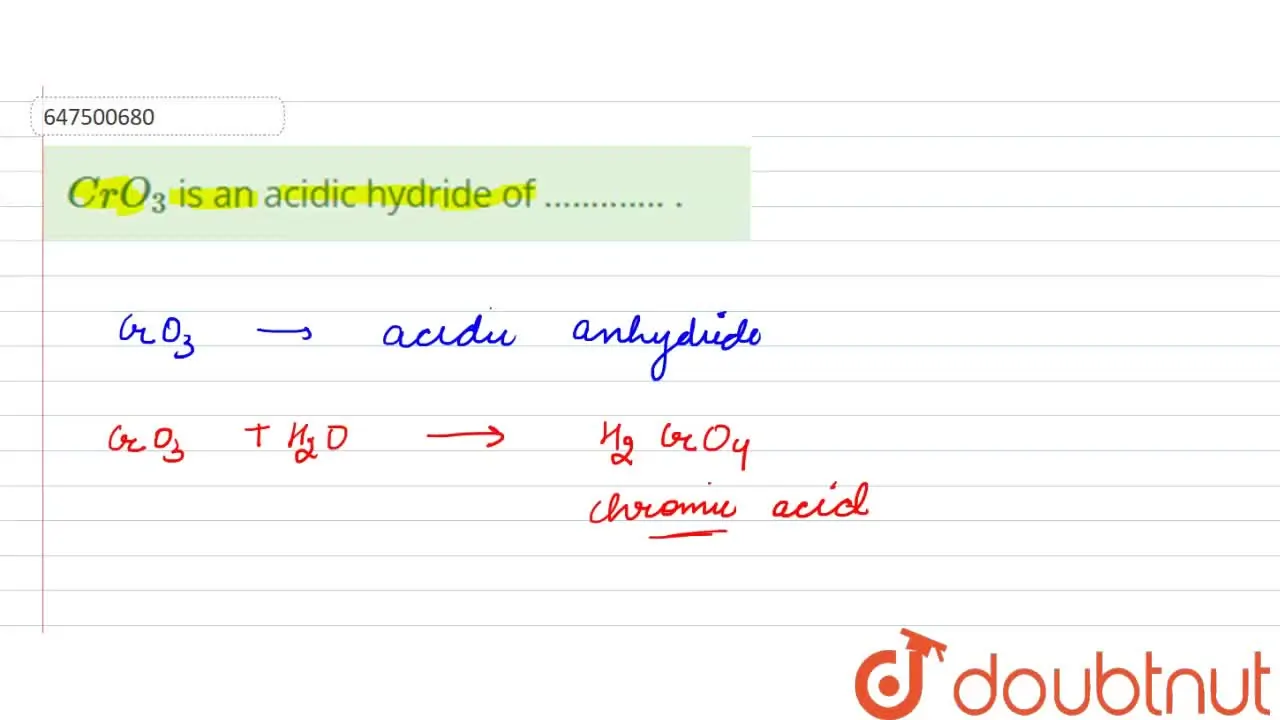 647500680
CrO₃ is an acidic hydride of ............. .
CrO₃ → acidic anhydride
CrO₃ + H₂O → H₂CrO₄
chromic acid
doubtnut